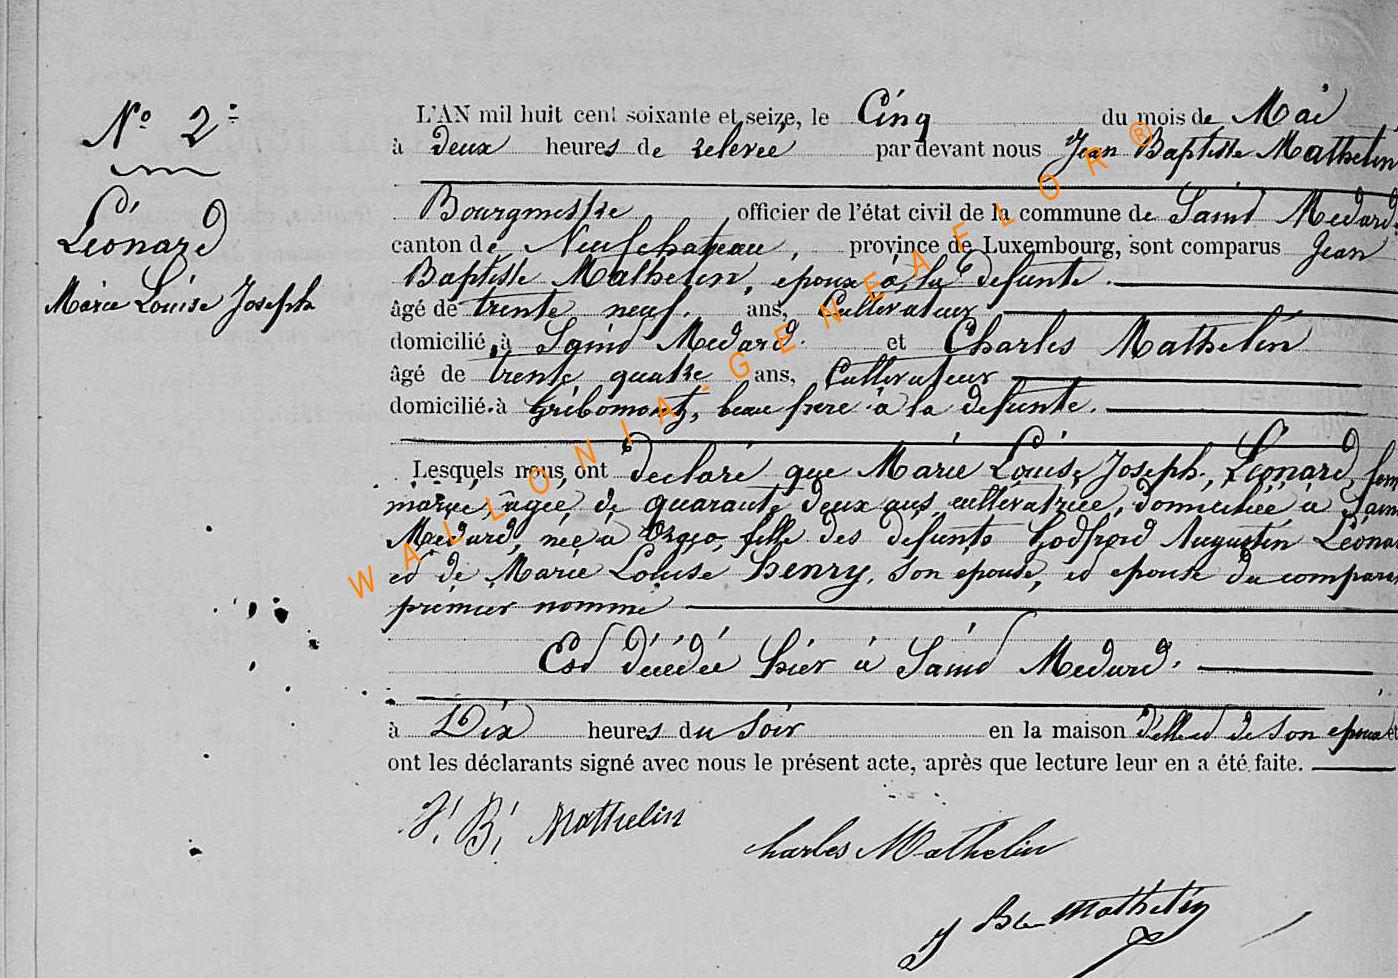 Nº 2
Léonard
Marie Louise Joseph
L'AN mil huit cent soixante et seize, le Cinq du mois de Mai
à deux heures de relevée par devant nous Jean Baptiste Mathelin
Bourgmestre officier de l'état civil de la commune de Saind Medard
canton de Neufchateau, province de Luxembourg, sont comparus Jean
Baptiste Mathelin, epoux à la defunte.
âgé de trente neuf. ans, Cultivateur
domicilié à Saind Medard. et Charles Mathelin
âgé de trente quatre ans, Cultivateur
domicilié à Gribomont, beau frere à la defunte.
Lesquels nous ont declaré que Marie Louise Joseph, Léonard,
mariée, âgée de quarante deux ans cultivatrice, domiciliée à
Medard, née à Orgeo, fille des defunts Godfroid Augustin
ed de Marie Louise henry, son epouse, ed epouse du
premier nommé
Esd décédée hier à Saind Medard.
à Dix heures du Soir en la maison d'elle ed de son epoux et
ont les déclarants signé avec nous le présent acte, après que lecture leur en a été faite.
J. B. Mathelin
Charles Mathelin
J Bte Mathelin
WALLONIA.GENEAFLOR®